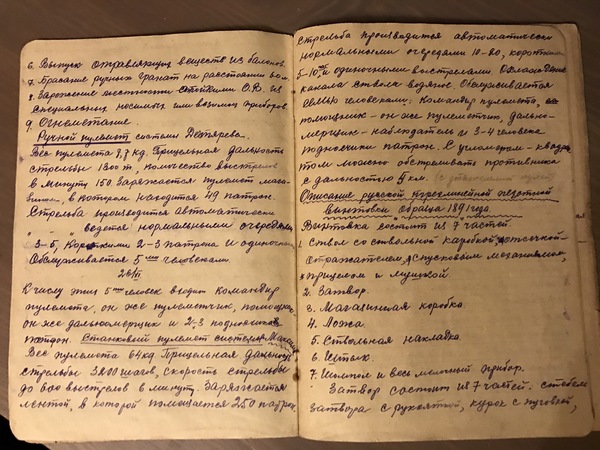 6. Выпуск отравляющих веществ из балонов.
7. Бросание ручных гранат на расстоянии
8. Заражение местности стойкими О.В. из
специальных носимых или возимых приборов.
9. Огнеметание.
Ручной пулемет системы Дегтярева.
Вес пулемета кг. Прицельная дальность
стрельбы 1500 м, количество выстрелов
в минуту 150. Заряжается пулемет мага-
зином, в котором находится 49 патрон.
Стрельба производится автоматически
" " ведется нормальными очередями
3-5, короткими 2-3 патрона и одиночн.
Обслуживается 5ю человеками.
К числу этих 5ти человек входит командир
пулемета, он же пулеметчик, помощник
он же дальномерщик и 2-3 подносчика
патрон. Станковый пулемет системы Максима
Вес пулемета 64 кг. Прицельная дальность
стрельбы шагов, скорость стрельбы
до 600 выстрелов в минуту. Заряжается
лентой, в которой помещается 250 патрон.
Стрельба производится автоматически
нормальными очередями 10-20, короткими
5-10 и одиночными выстрелами. Охлаждение
канала ствола водяное. Обслуживается
семью человеками: командир пулемета,
помощник - он же пулеметчик, дально-
мерщик - наблюдатель и 3-4 человека
подносчики патрон. С угломером-квадран-
том можно обстреливать противника
с дальностью 5 км.
Описание русской трехлинейной пехотной
винтовки образца 1891 года
Винтовка состоит из 7 частей.
1. Ствол со ствольной коробкой, отсечкой-
отражателем, спусковым механизмом,
прицелом и мушкой.
2. Затвор.
3. Магазинная коробка.
4. Ложа.
5. Ствольная накладка.
6. Штык.
7. Шомпол и весь мелочный прибор.
Затвор состоит из 7 частей. стебель
затвора с рукояткой, курок с пуговкой,